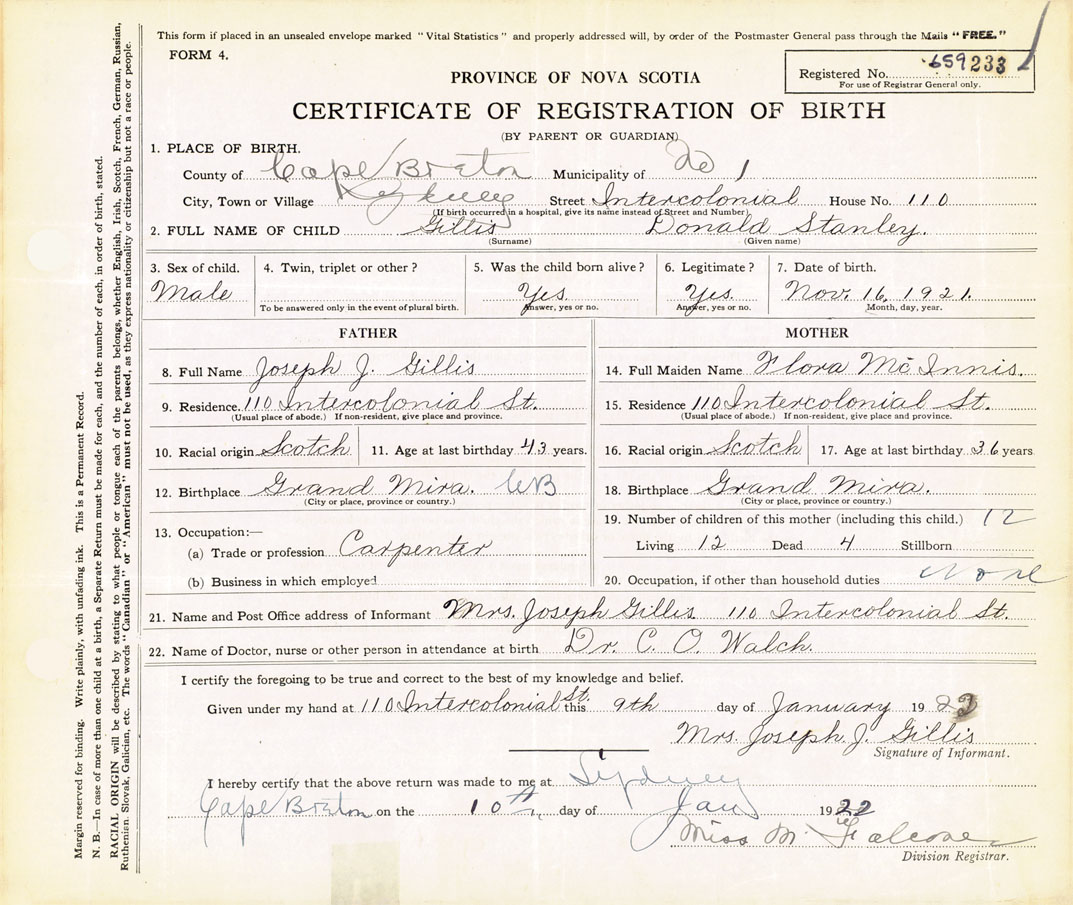 This form if placed in an unsealed envelope marked "Vital Statistics" and properly addressed will, by order of the Postmaster General pass through the Mails "FREE."
FORM 4.
Registered No. 659233
For use of Registrar General only.
PROVINCE OF NOVA SCOTIA
CERTIFICATE OF REGISTRATION OF BIRTH
(BY PARENT OR GUARDIAN)
1. PLACE OF BIRTH.
County of Cape Breton Municipality of 1
City, Town or Village Sydney Street Intercolonial House No. 110
(If birth occurred in a hospital, give its name instead of Street and Number)
2. FULL NAME OF CHILD Gillis Donald Stanley.
(Surname) (Given name)
3. Sex of child. 4. Twin, triplet or other? 5. Was the child born alive? 6. Legitimate? 7. Date of birth.
Male Yes. Yes. Nov. 16, 1921.
To be answered only in the event of plural birth. Answer, yes or no. Answer, yes or no. Month, day, year.
FATHER MOTHER
8. Full Name Joseph J. Gillis 14. Full Maiden Name Flora McInnis.
9. Residence. 110 Intercolonial St. 15. Residence 110 Intercolonial St.
(Usual place of abode.) If non-resident, give place and province. (Usual place of abode.) If non-resident, give place and province.
10. Racial origin Scotch 11. Age at last birthday 43 years. 16. Racial origin Scotch 17. Age at last birthday 36 years
12. Birthplace Grand Mira. CB 18. Birthplace Grand Mira.
(City or place, province or country.) (City or place, province or country.)
13. Occupation:— 19. Number of children of this mother (including this child.) 12
(a) Trade or profession Carpenter Living 12 Dead 4 Stillborn
(b) Business in which employed 20. Occupation, if other than household duties None
21. Name and Post Office address of Informant Mrs. Joseph Gillis 110 Intercolonial St.
22. Name of Doctor, nurse or other person in attendance at birth Dr. C. O. Walch.
I certify the foregoing to be true and correct to the best of my knowledge and belief.
Given under my hand at 110 Intercolonial St. this 9th day of January 192
Mrs. Joseph J. Gillis
Signature of Informant.
I hereby certify that the above return was made to me at Sydney
Cape Breton on the 10th day of Jan 1922
Miss M
Division Registrar.
Margin reserved for binding. Write plainly, with unfading ink. This is a Permanent Record.
N. B.—In case of more than one child at a birth, a Separate Return must be made for each, and the number of each, in order of birth, stated.
RACIAL ORIGIN will be described by stating to what people or tongue each of the parents belongs, whether English, Irish, Scotch, French, German, Russian,
Ruthenian. Slovak, Galician, etc. The words "Canadian" or "American" must not be used, as they express nationality or citizenship but not a race or people.